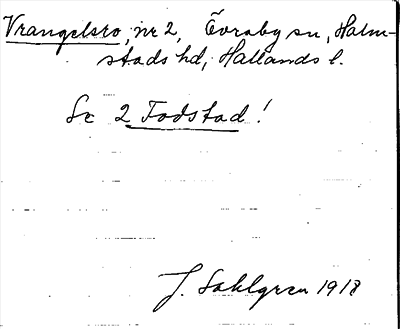 Vrangelsro, nr 2, Övraby sn, Halm-
stads hd, Hallands l.
Se 2 Fodstad!
J. Sahlgren 1918